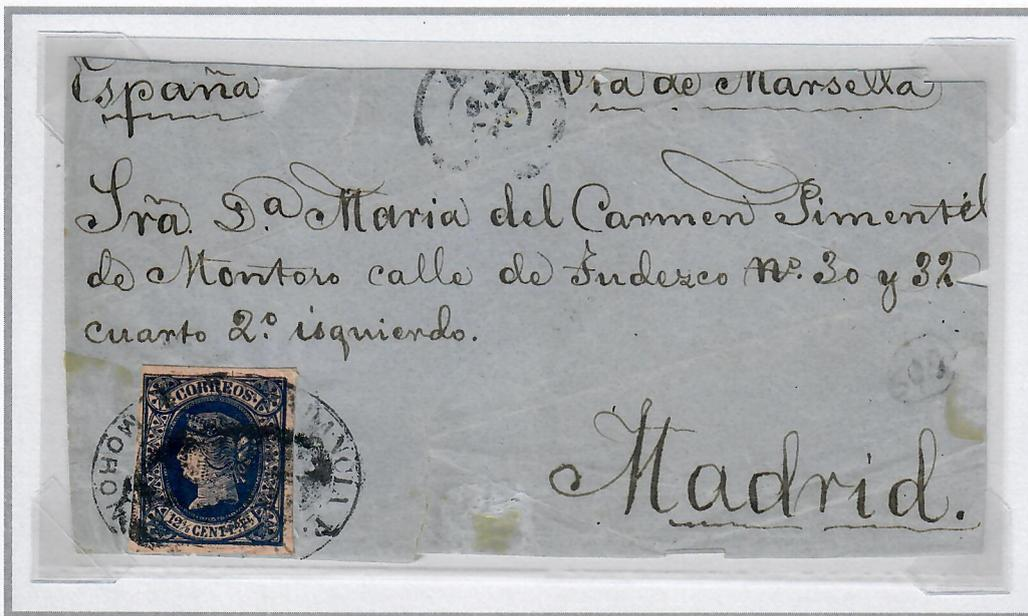 España Via de Marsella
Srã. D.ª Maria del Carmen Pimentel
de Montoro calle de Judezco Nº. 30 y 32
cuarto 2º isquierdo.
Madrid.
CORREOS
12 4/8 CENT. PESO
MORON